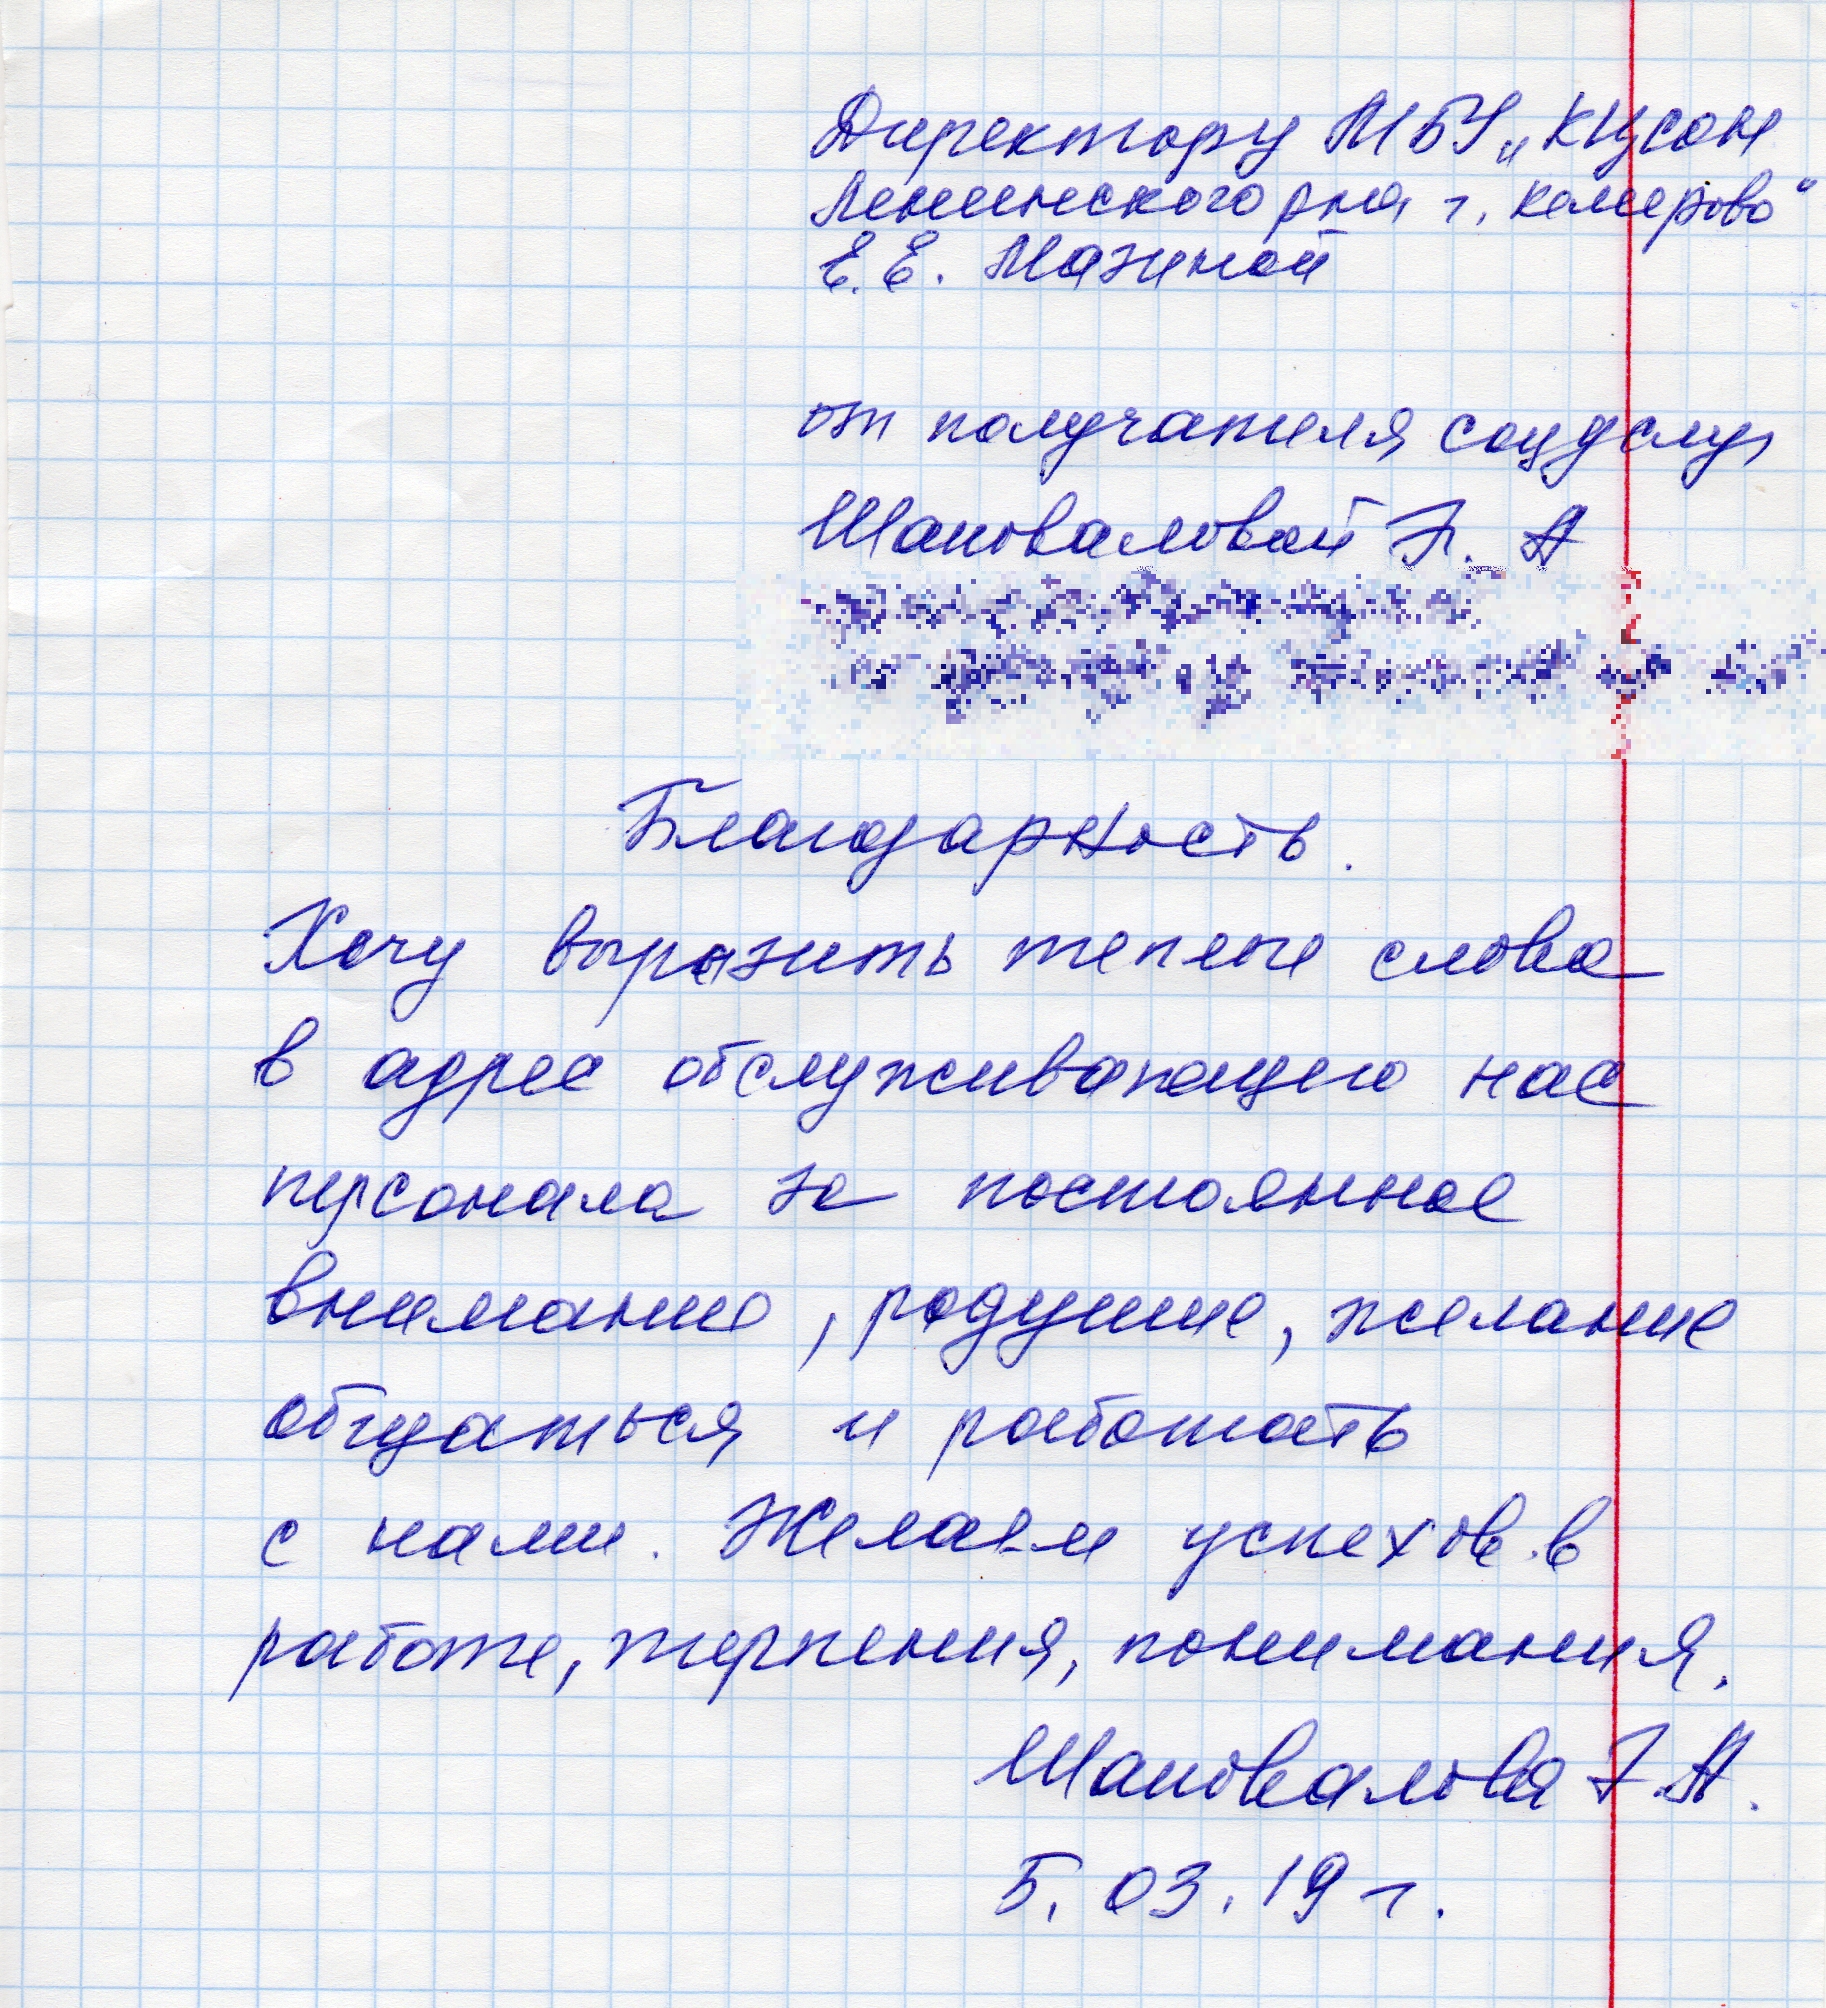 Директору МБУ „КЦСОН
Ленинского р-на г. Кемерово"
Е.Е. Мазиной
от получателя соцуслуг
Шаповаловой Г. А
Благодарность.
Хочу выразить теплые слова
в адрес обслуживающего нас
персонала за постоянное
внимание, радушие, желание
общаться и работать
с нами. Желаем успехов в
работе, терпения, понимания.
Шаповалова Г.А.
5.03.19 г.